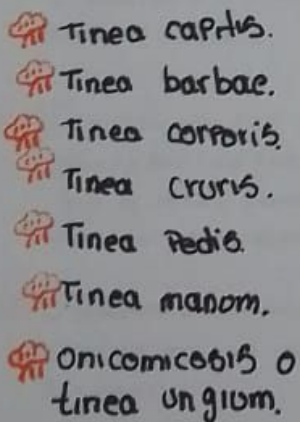 Tinea capitis.
Tinea barbae.
Tinea corporis.
Tinea cruris.
Tinea Pedis.
Tinea manom.
Onicomicosis o
tinea ungium.